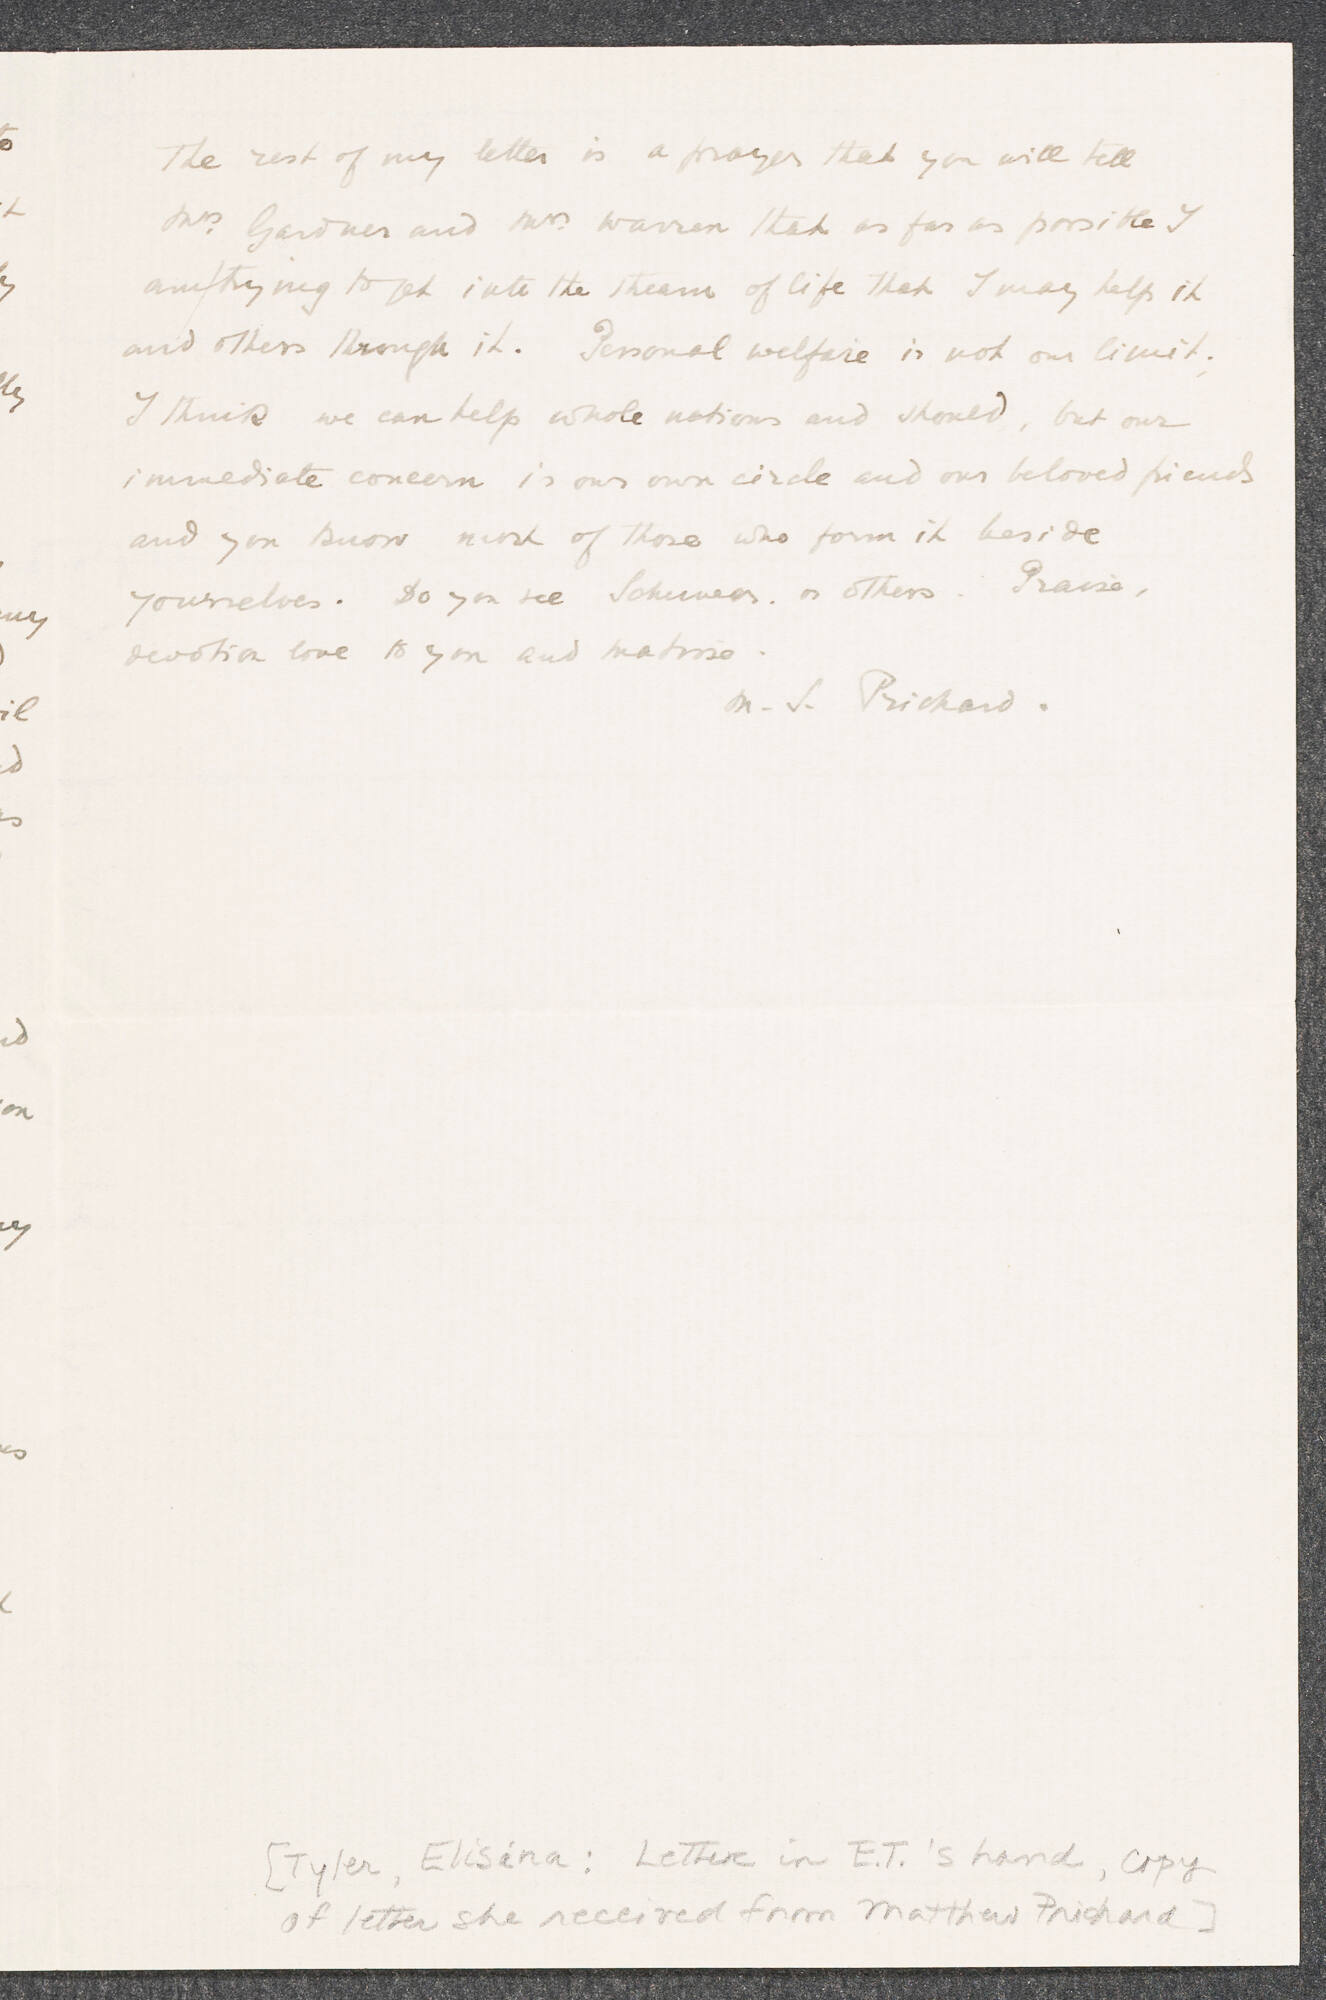 The rest of my letter is a prayer that you will tell
Mrs. Gardner and Mrs. Warren that as far as possible I
am trying to get into the stream of life that I may help it
and others through it. Personal welfare is not our limit.
I think we can help whole nations and should, but our
immediate concern is our own circle and our beloved friends
and you know most of those who form it beside
yourselves. Do you see or others. Praise,
devotion love to you and
M. S. Prichard.
[Tyler, Elisina: Letter in E.T.'s hand, copy
of letter she received from Matthew Prichard]